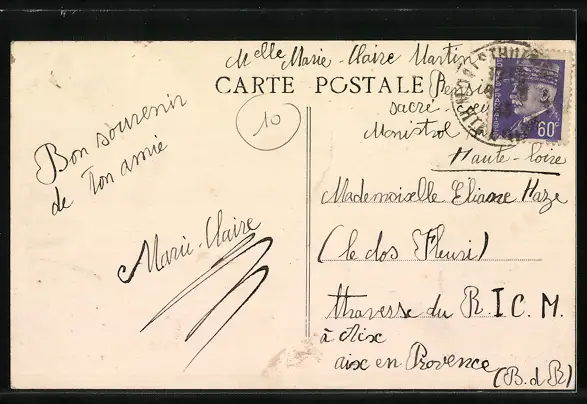 Melle Marie-Claire Martin
CARTE POSTALE
sacré-
Monistrol
Haute-Loire
10
60c
Bon souvenir
de Ton amie
Marie-Claire
Mademoiselle Eliane Haze
(le clos Fleuri)
traverse du R.I.C.M.
à Aix
aix en Provence
(B.d R)